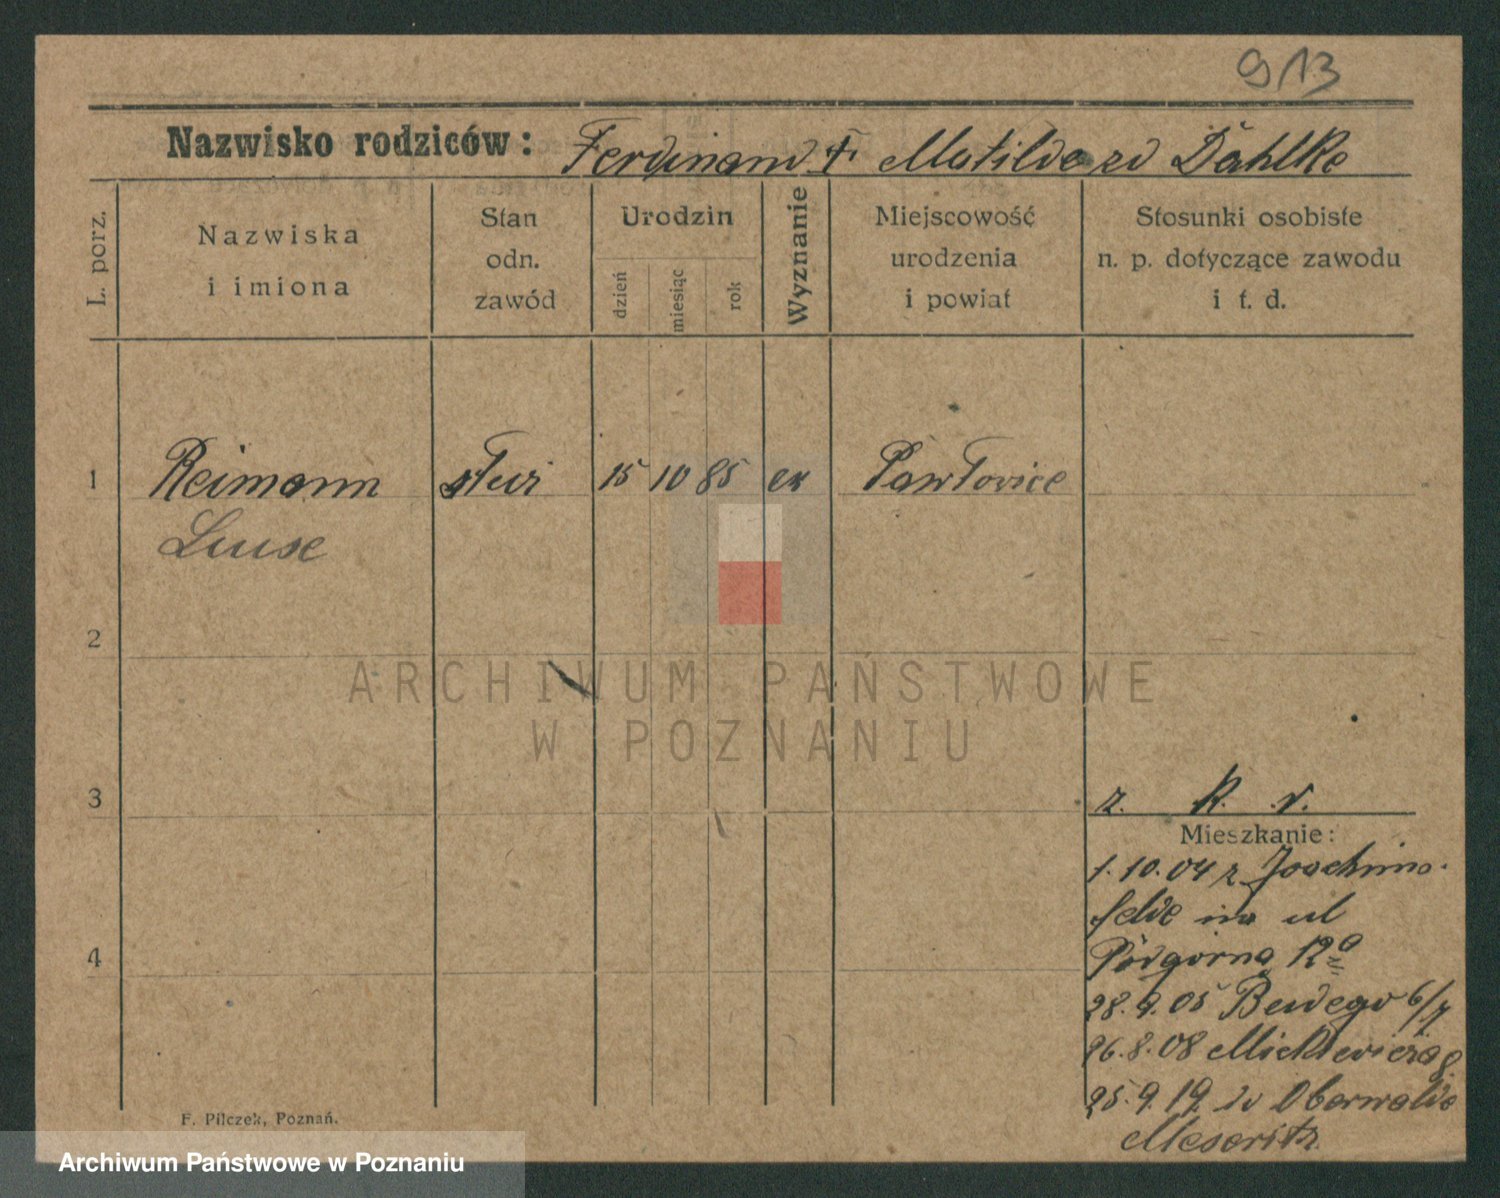 913
Nazwisko rodziców: Ferdinand + Matilde zd Dahlke
L. porz.
Nazwiska i imiona
Stan odn. zawód
Urodzin
dzień
miesiąc
rok
Wyznanie
Miejscowość urodzenia i powiat
Stosunki osobiste n. p. dotyczące zawodu i t. d.
1 Reimann służ 15 10 85 ew Pawłovice
Luise
2
ARCHIWUM PAŃSTWOWE
W POZNANIU
3
z. k. v.
Mieszkanie:
1.10.04 z Joachims-
felde na ul
4
Podgórna 12a
28.9.05 6/7
26.8.08 Mickiewicza
25.9.19 do Oberwalde
Meseritz
F. Pilczek, Poznań.
Archiwum Państwowe w Poznaniu